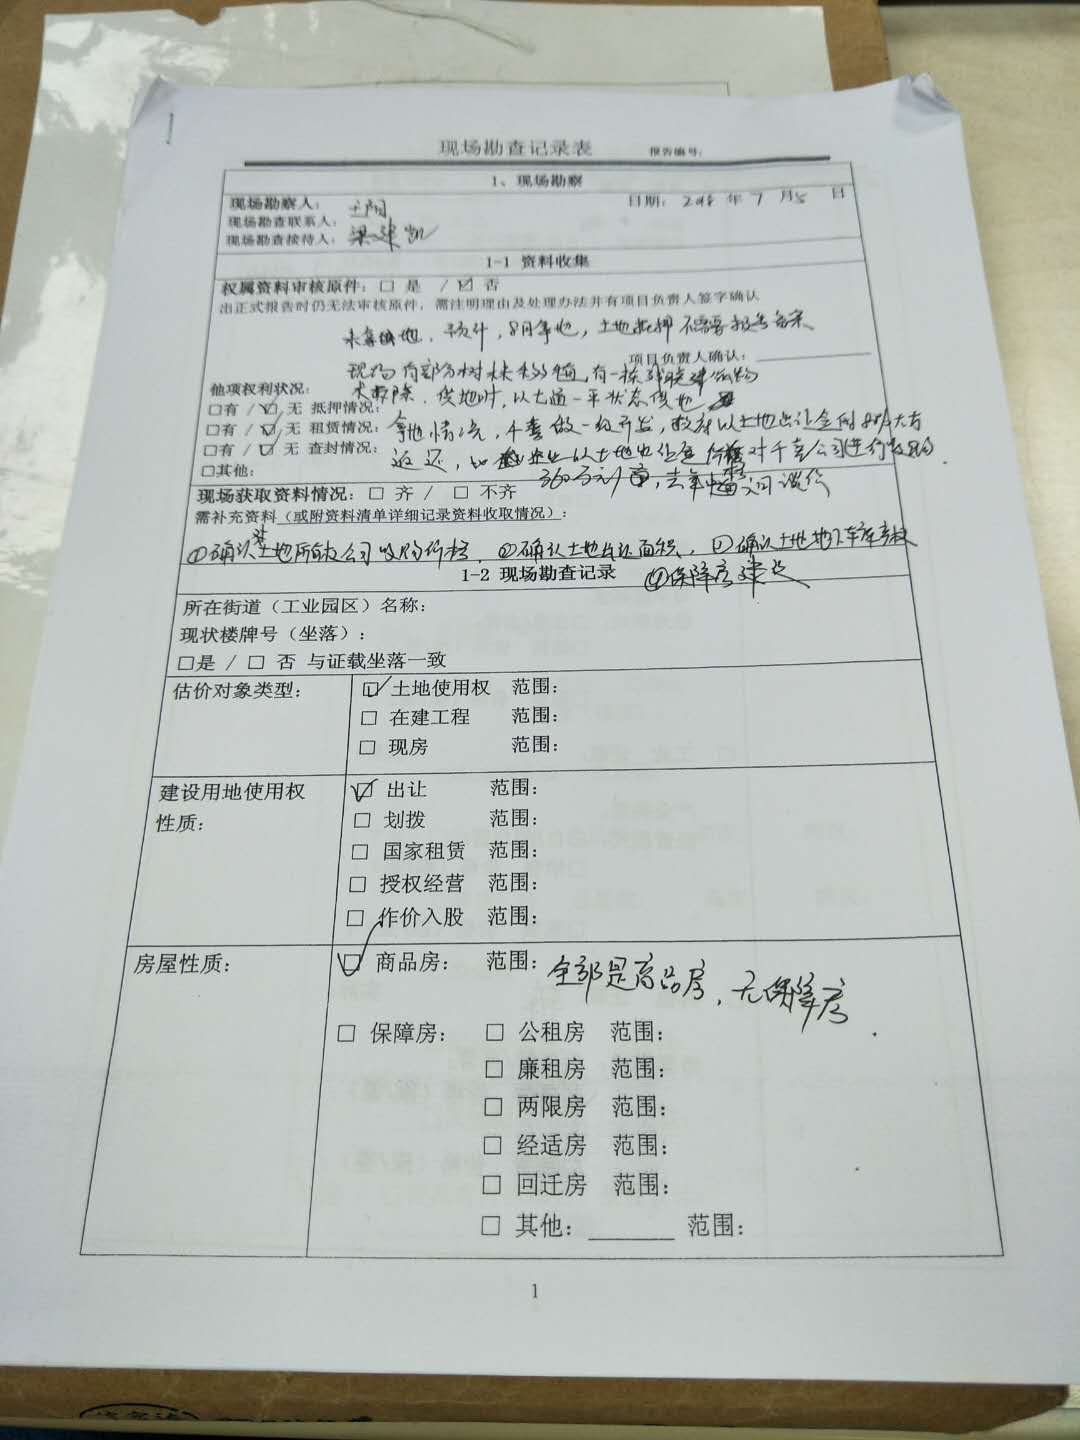 现场勘查记录表 报告编号:
1、现场勘察
现场勘察人: 王阳 日期: 2018 年 7 月 5 日
现场勘查联系人:
现场勘查接待人: 梁建凯
1-1 资料收集
权属资料审核原件: □ 是 / ☑ 否
出正式报告时仍无法审核原件, 需注明理由及处理办法并有项目负责人签字确认
8月拿地, 土地抵押不需要报告备案
项目负责人确认:
现场有部分树木未移植, 有一栋残破建筑物
他项权利状况: 未拆除, 供地时, 以七通一平状态供地
□有 / ☑ 无 抵押情况:
□有 / ☑ 无 租赁情况: 拿地情况,
□有 / ☑ 无 查封情况: 返还,
□其他: 360万元/亩, 去年
现场获取资料情况: □ 齐 / □ 不齐
需补充资料(或附资料清单详细记录资料收取情况):
①确认土地所在公司收购价格, ②确认土地 面积, ③确认土地地下车库产权
1-2 现场勘查记录 ④保障房建设
所在街道(工业园区)名称:
现状楼牌号(坐落):
□是 / □ 否 与证载坐落一致
估价对象类型: ☑ 土地使用权 范围:
□ 在建工程 范围:
□ 现房 范围:
建设用地使用权
性质:
☑ 出让 范围:
□ 划拨 范围:
□ 国家租赁 范围:
□ 授权经营 范围:
□ 作价入股 范围:
房屋性质: ☑ 商品房: 范围: 全部是商品房, 无保障房.
□ 保障房: □ 公租房 范围:
□ 廉租房 范围:
□ 两限房 范围:
□ 经适房 范围:
□ 回迁房 范围:
□ 其他: 范围:
1